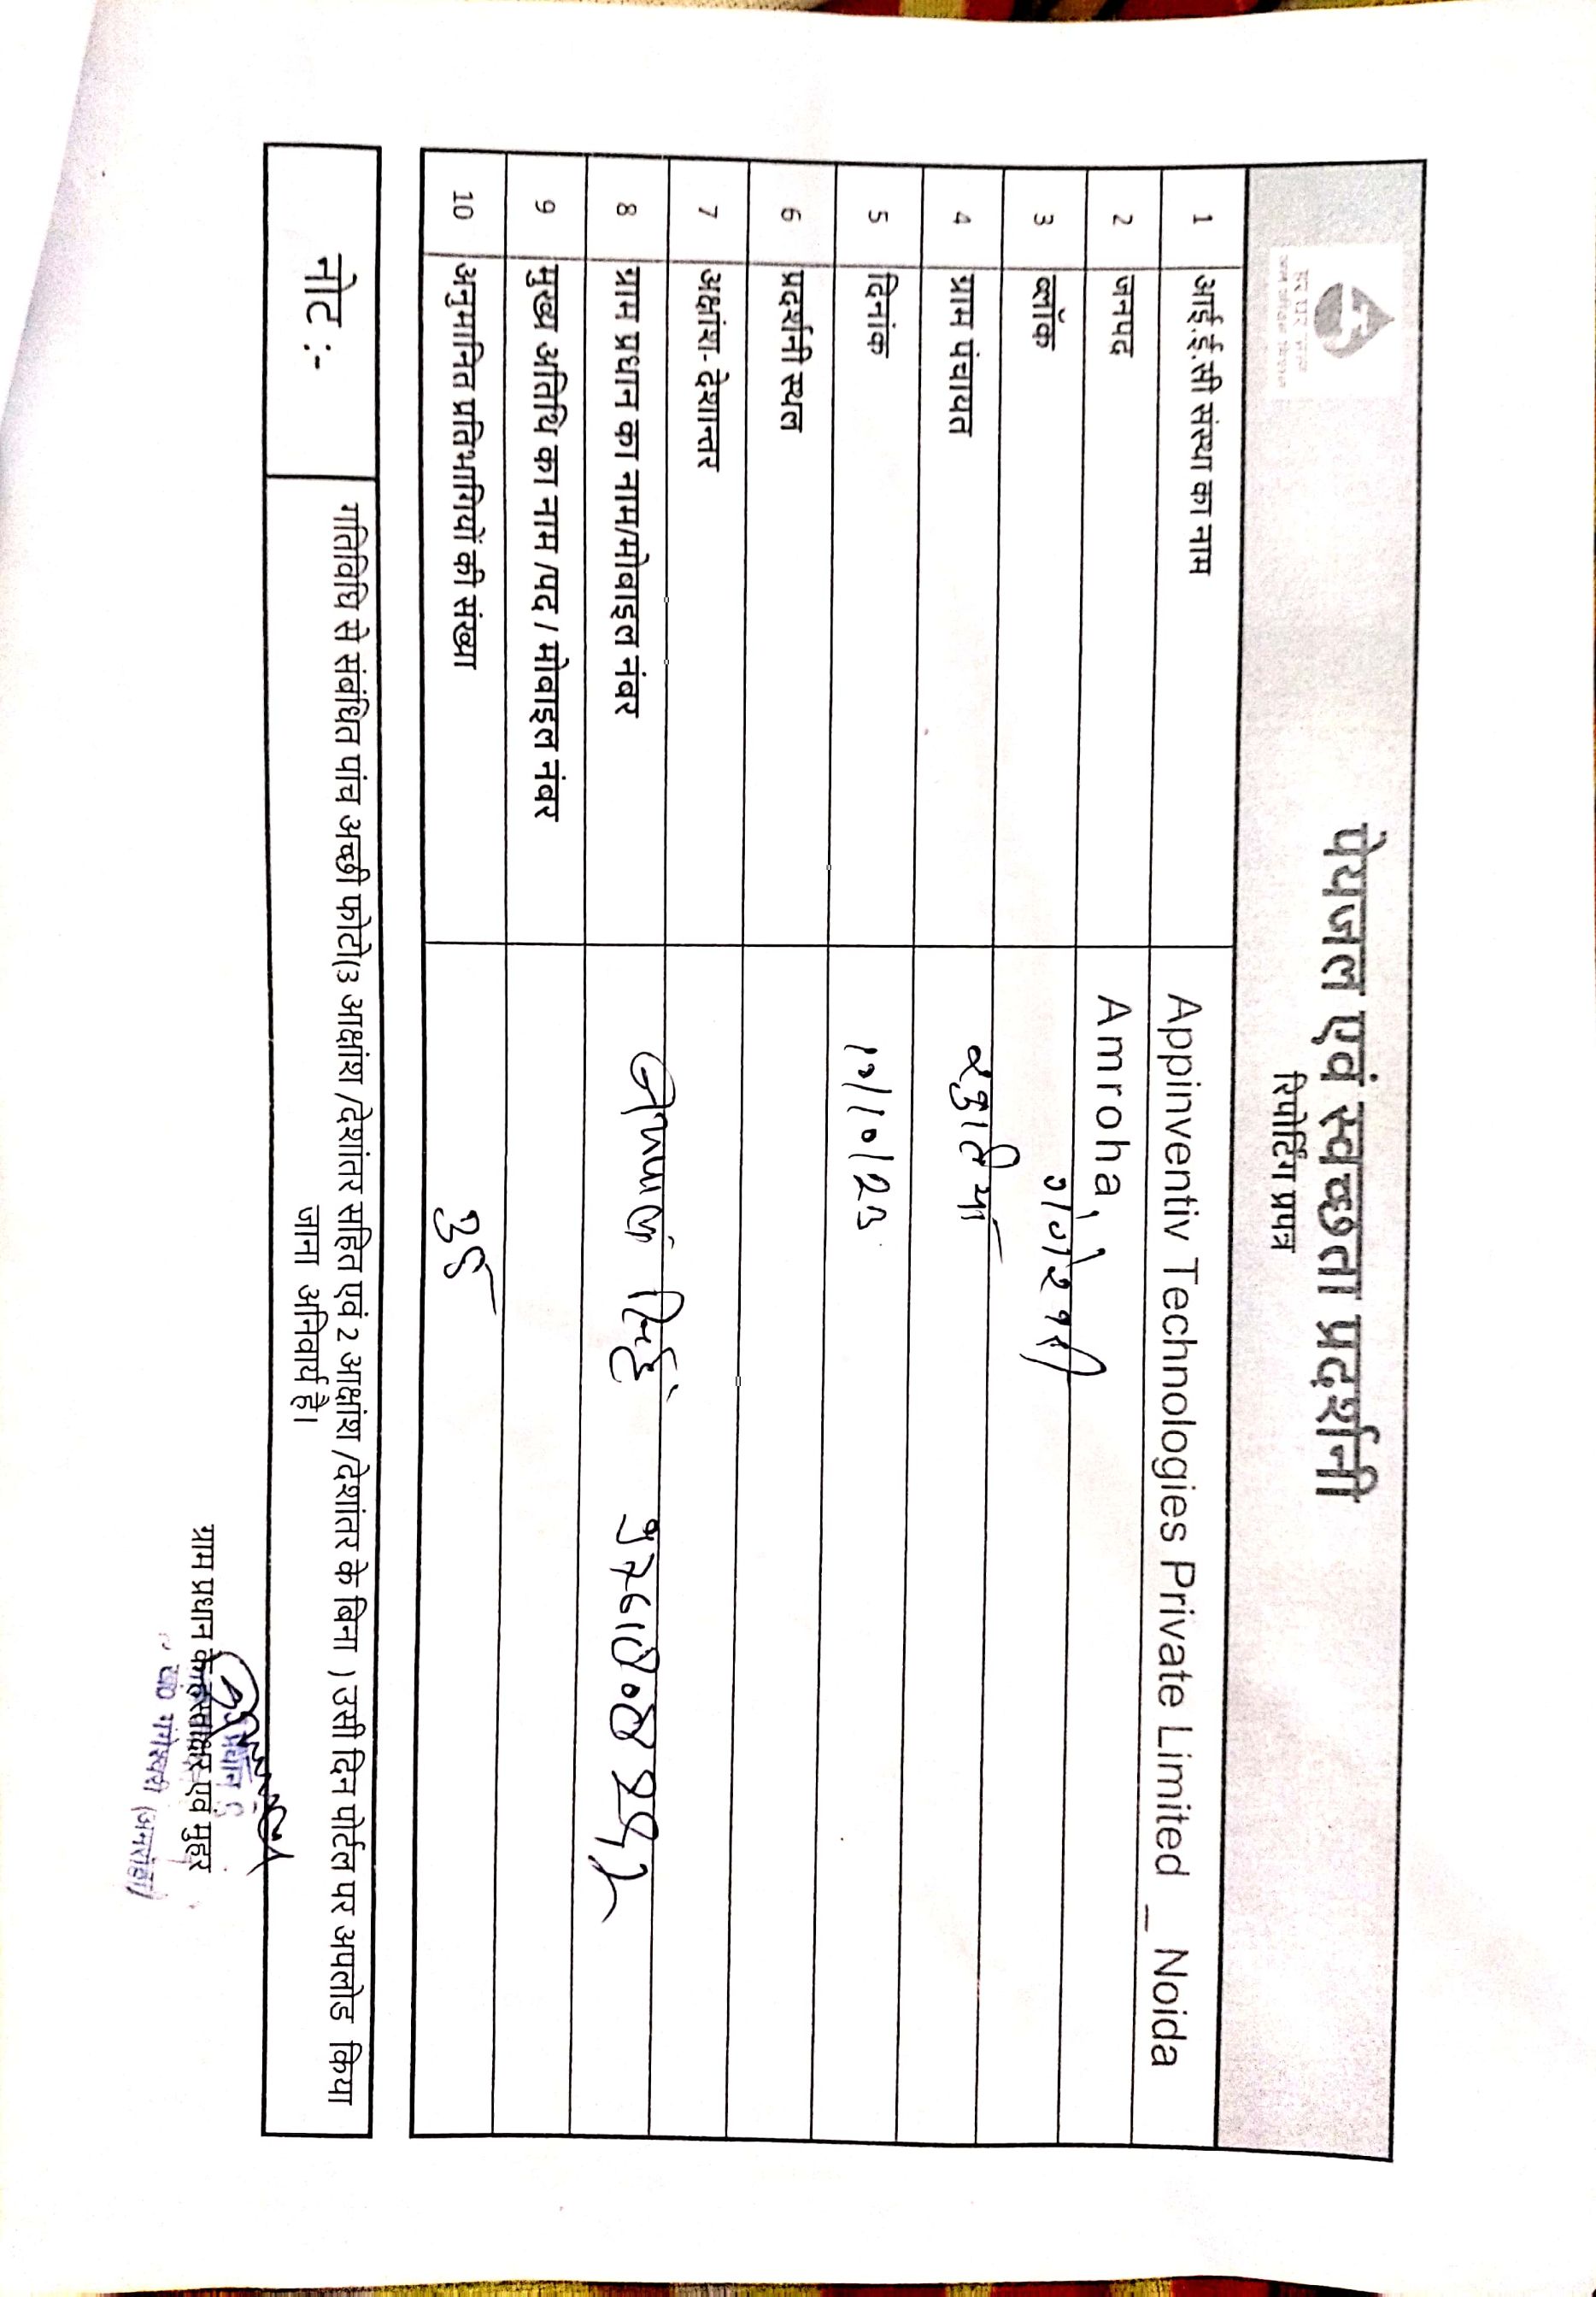 हर घर जल
जल जीवन मिशन
पेयजल एवं स्वच्छता प्रदर्शनी
रिपोर्टिंग प्रपत्र
1 आई.ई.सी संस्था का नाम Appinventiv Technologies Private Limited _ Noida
2 जनपद Amroha,
3 ब्लॉक गंगेश्वरी
4 ग्राम पंचायत
5 दिनांक 10/10/23
6 प्रदर्शनी स्थल
7 अक्षांश- देशान्तर
8 ग्राम प्रधान का नाम/मोबाइल नंबर सिंह
9 मुख्य अतिथि का नाम /पद / मोबाइल नंबर
10 अनुमानित प्रतिभागियों की संख्या 35
नोट :- गतिविधि से संबंधित पांच अच्छी फोटो(3 आक्षांश /देशांतर सहित एवं 2 आक्षांश /देशांतर के बिना ) उसी दिन पोर्टल पर अपलोड किया
जाना अनिवार्य है।
प्रधान
ग्राम प्रधान के हस्ताक्षर एवं मुहर
गंगेश्वरी (अमरोहा)